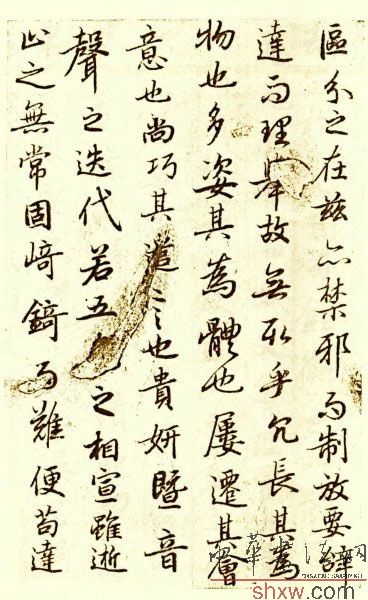 區分之在茲亦禁邪而制放要辭
達而理舉故無取乎冗長其為
物也多姿其為體也屢遷其會
意也尚巧其遣言也貴妍暨音
聲之迭代若五之相宣雖逝
止之無常固崎錡而難便苟達
shxw.com